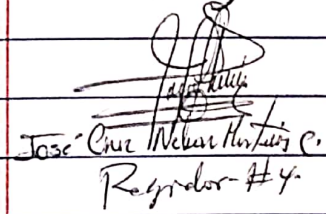 José Cruz Nelson Martínez C.
Regidor #4.